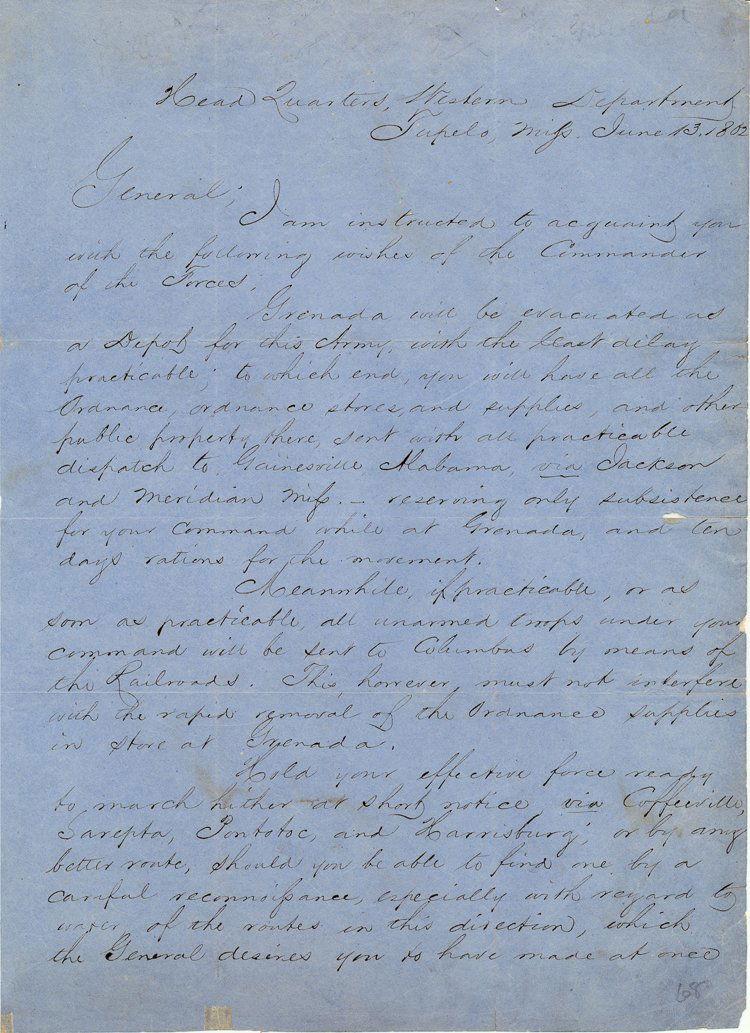 Head Quarters, Western Department
Tupelo, Miss. June 13, 1862
General;
I am instructed to acquaint you
with the following wishes of the Commander
of the Forces.
Grenada will be evacuated as
a Depot for this Army, with the least delay
practicable; to which end, you will have all the
Ordnance, ordnance stores, and supplies, and other
public property there, sent with all practicable
dispatch to Gainesville Alabama, via Jackson
and Meridian Miss. – reserving only subsistence
for your command while at Grenada, and ten
days rations for the movement.
Meanwhile, if practicable, or as
soon as practicable, all unarmed troops under your
command will be sent to Columbus by means of
the Railroads. This, however, must not interfere
with the rapid removal of the Ordnance supplies
in store at Grenada.
Hold your effective force ready
to march hither at short notice via Coffeeville,
Sarepta, Pontotoc, and Harrisburg; or by any
better route, should you be able to find one by a
careful reconnoissance, especially with regard to
water, of the routes in this direction, which
the General desires you to have made at once
68